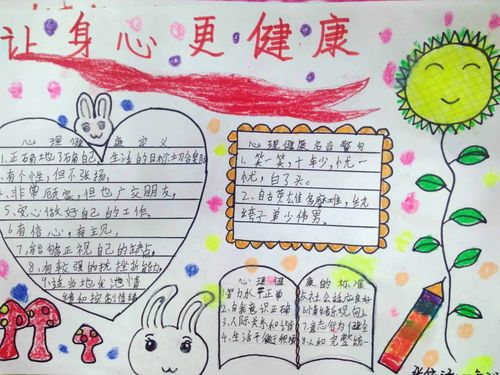 让身心更健康
心理健康定义
1.正确地了解自己,生活的目标切合实际
.有个性,但不张扬。
.非常顾家,但也广交朋友,
5.安心做好自己的工作。
6.有信心,有主见,
7.能够正视自己的缺点,
8.有较强的抗挫折能力
适当地发泄情
绪和控制情绪
心理健康名言警句
1.笑一笑,十年少,忧一
忧,白了头。
2.自古英雄多磨难,纨
绔子弟少伟男。
心理健
1.智力水平正常
2.自我意识正确
3.人际关系和谐
4.生活平衡积极
康的标准
5.社会适应良好
6.情绪乐观向上
7.意志行为健全
8.人和完整统一